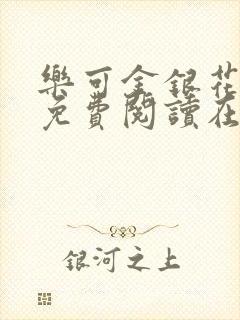 樂可金銀花
免費閱讀在
銀河之上